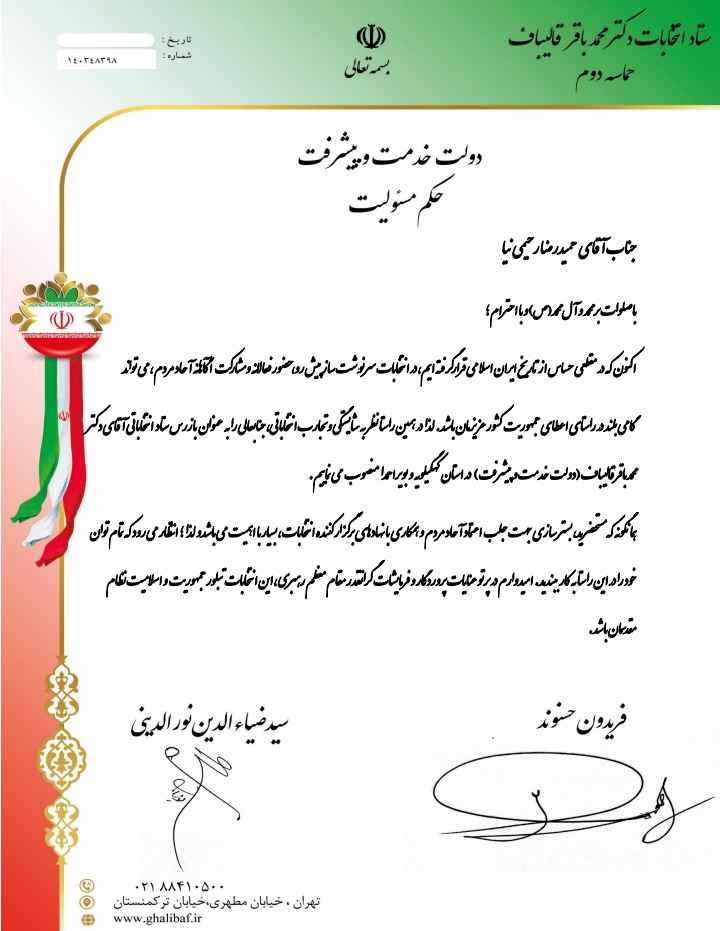 ستاد انتخابات دکتر محمد باقر قالیباف
حماسه دوم
بسمه تعالی
تاریخ :
شماره : ۱۴۰۳۴۸۳۹۸
دولت خدمت و پیشرفت
حکم مسئولیت
جناب آقای حمیدرضا رحیمی نیا
با صلوات بر محمد و آل محمد(ص) و با احترام ؛
اکنون که در مقطعی حساس از تاریخ ایران اسلامی قرار گرفته ایم، در انتخابات سرنوشت ساز پیش رو، حضور فعالانه و مشارکت آگاهانه آحاد مردم ، می تواند
گامی بلند در راستای اعتلای جمهوریت کشور عزیزمان باشد. لذا در همین راستا نظر به شایستگی و تجارب انتخاباتی، جنابعالی را به عنوان بازرس ستاد انتخاباتی آقای دکتر
محمد باقر قالیباف (دولت خدمت و پیشرفت) در استان کهگیلویه و بویراحمد منصوب می نماییم .
همانگونه که مستحضرید، بستر سازی جهت جلب اعتماد آحاد مردم و همکاری با نهادهای برگزار کننده انتخابات، بسیار با اهمیت می باشد و لذا ؛ انتظار می رود که تمام توان
خود را در این راستا به کار ببندید. امیدوارم در پرتو عنایات پروردگار و فرمایشات گرانقدر مقام معظم رهبری، این انتخابات تبلور جمهوریت و اسلامیت نظام
مقدسمان باشد.
فریدون حسنوند
سید ضیاء الدین نور الدینی
۰۲۱ ۸۸۴۱۰۵۰۰
تهران ، خیابان مطهری،خیابان ترکمنستان
www.ghalibaf.ir